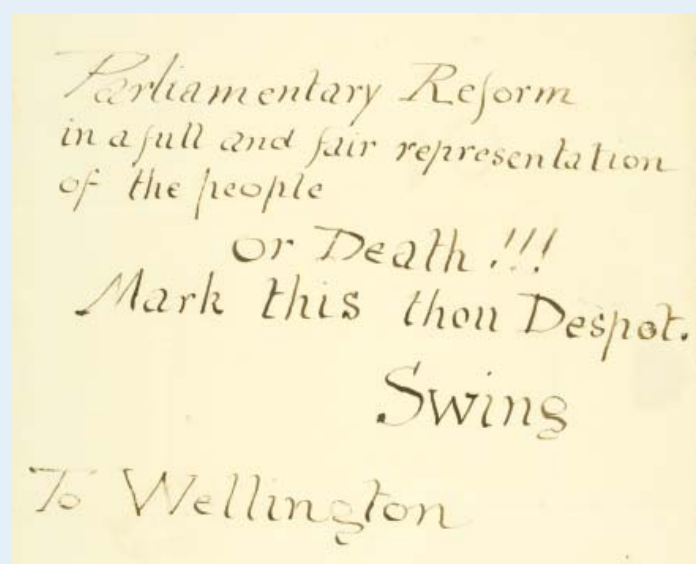 Parliamentary Reform
in a full and fair representation
of the people
or Death !!!
Mark this thou Despot.
Swing
To Wellington